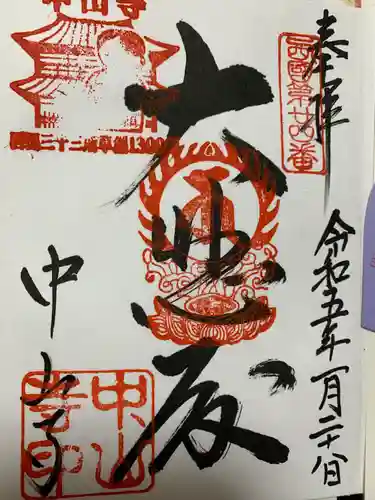 奉拝
西国第廿四番
令和五年一月二十八日
大悲殿
中山寺
西国三十三所草創1300年
中山寺
中山寺印